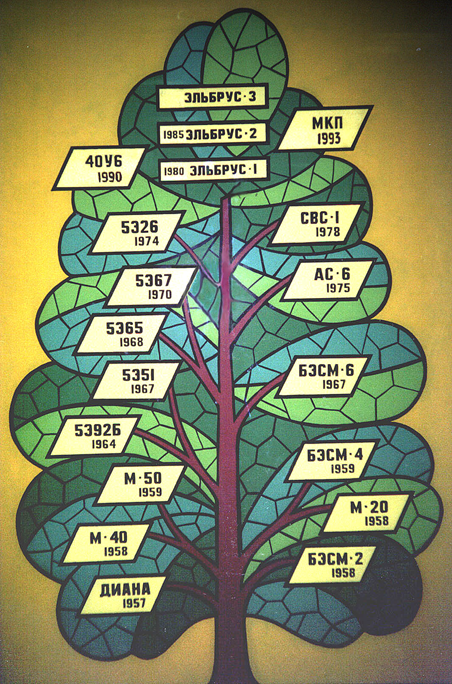 ЭЛЬБРУС·3
1985 ЭЛЬБРУС·2
МКП
1993
40У6
1990
1980 ЭЛЬБРУС·1
5326
1974
СВС·1
1978
5367
1970
АС·6
1975
5365
1968
5351
1967
БЭСМ·6
1967
5392Б
1964
БЭСМ·4
1959
М·50
1959
М·20
1958
М·40
1958
БЭСМ·2
1958
ДИАНА
1957